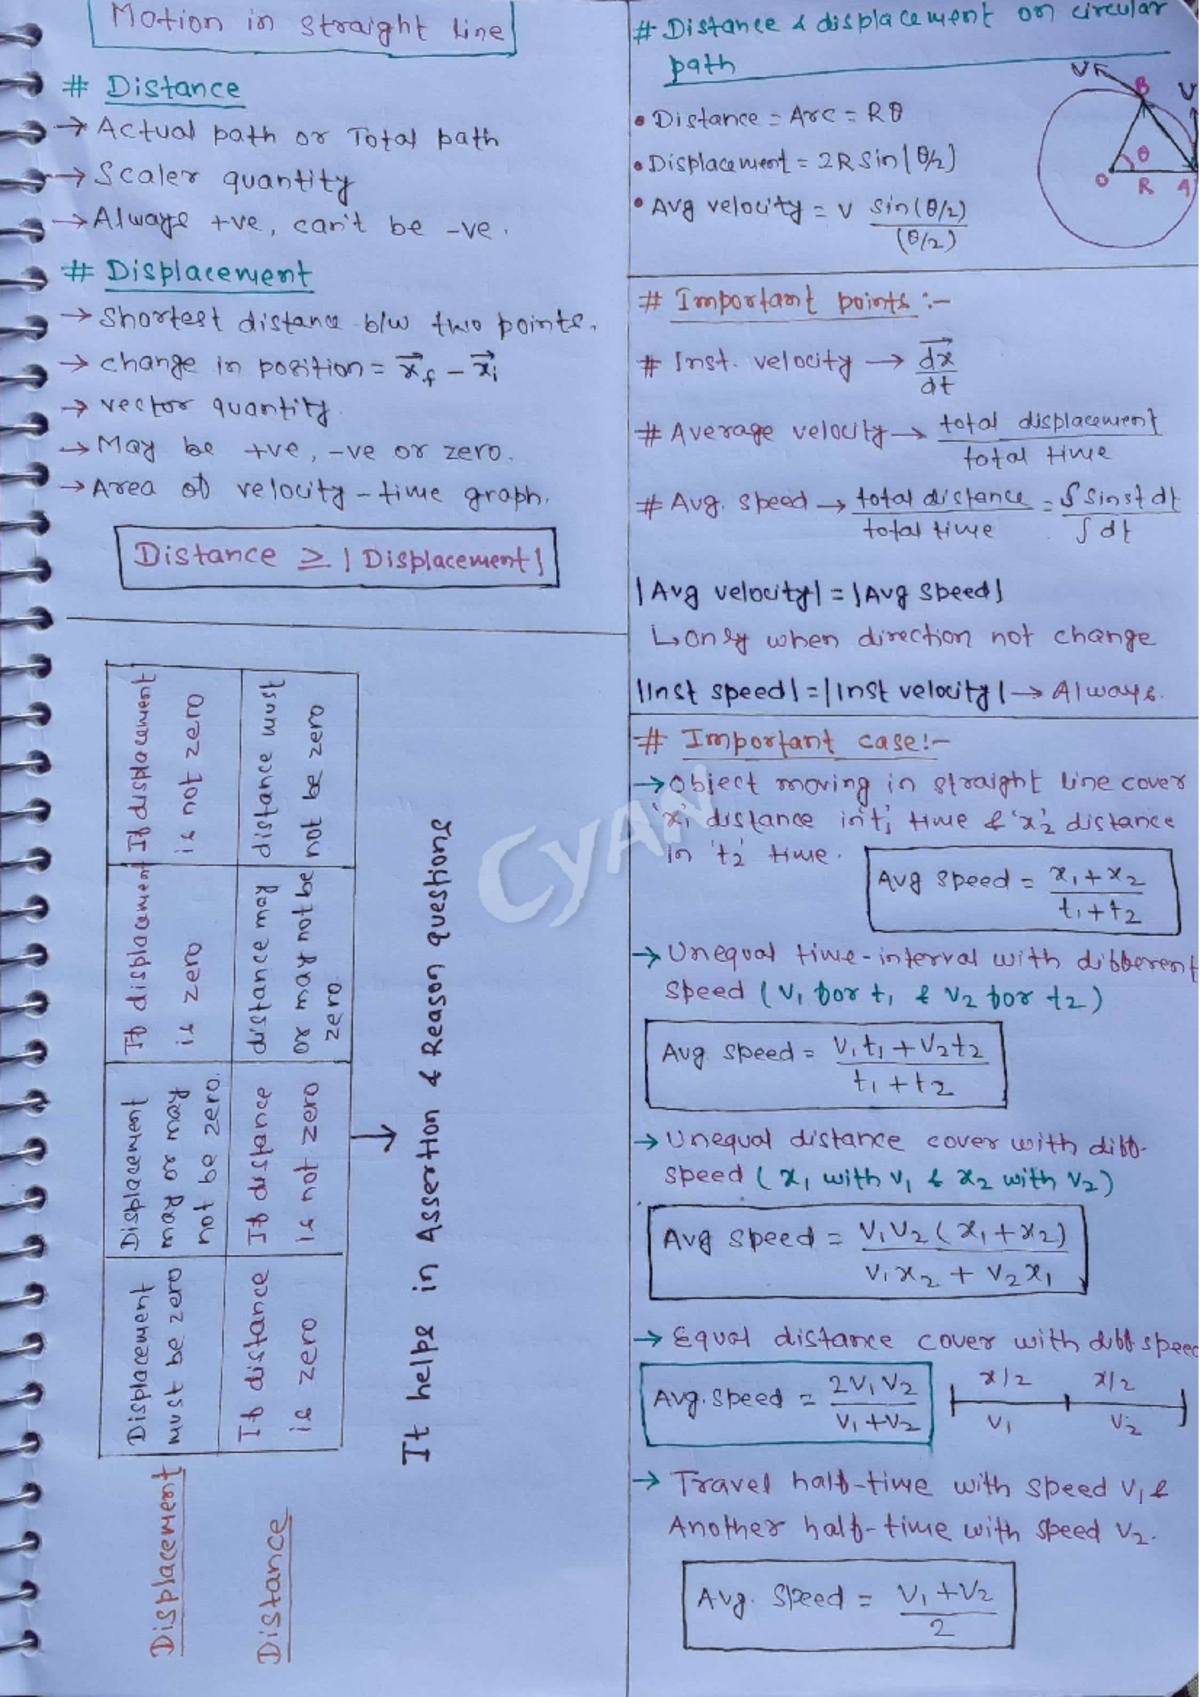 Motion in straight line
# Distance
→ Actual path or Total path
→ Scaler quantity
→ Always +ve, can't be -ve.
# Displacement
→ Shortest distance b/w two points.
→ change in position = x⃗f - x⃗i
→ vector quantity.
→ May be +ve, -ve or zero.
→ Area of velocity-time graph.
Distance ≥ | Displacement |
Displacement
Displacement
must be zero
Displacement
may or may
not be zero.
If displacement
is zero
If displacement
is not zero
Distance
If distance
is zero
If distance
is not zero
distance may
or may not be
zero.
distance must
not be zero
→ It helps in Assertion & Reason questions
# Distance & displacement on circular
path
• Distance = Arc = Rθ
• Displacement = 2R Sin(θ/2)
• Avg velocity = V Sin(θ/2)
(θ/2)
V
B
V
θ
O
R
A
# Important points :-
# Inst. velocity → dx⃗
dt
# Average velocity → total displacement
total time
# Avg. speed → total distance = ∫Sinst dt
total time ∫dt
|Avg velocity| = |Avg speed|
↳ only when direction not change
|Inst speed| = |Inst velocity| → Always.
# Important case:-
→ Object moving in straight line cover
'x₁' distance in 't₁' time & 'x₂' distance
in 't₂' time.
Avg speed = x₁+x₂
t₁+t₂
→ Unequal time-interval with different
speed (V₁ for t₁ & V₂ for t₂)
Avg. speed = V₁t₁+V₂t₂
t₁+t₂
→ Unequal distance cover with diff.
speed (x₁ with V₁ & x₂ with V₂)
Avg speed = V₁V₂(x₁+x₂)
V₁x₂ + V₂x₁
→ Equal distance cover with diff speed
Avg. speed = 2V₁V₂
V₁+V₂
x/2 x/2
V₁ V₂
→ Travel half-time with speed V₁ &
Another half-time with speed V₂.
Avg. Speed = V₁+V₂
2
CYAN